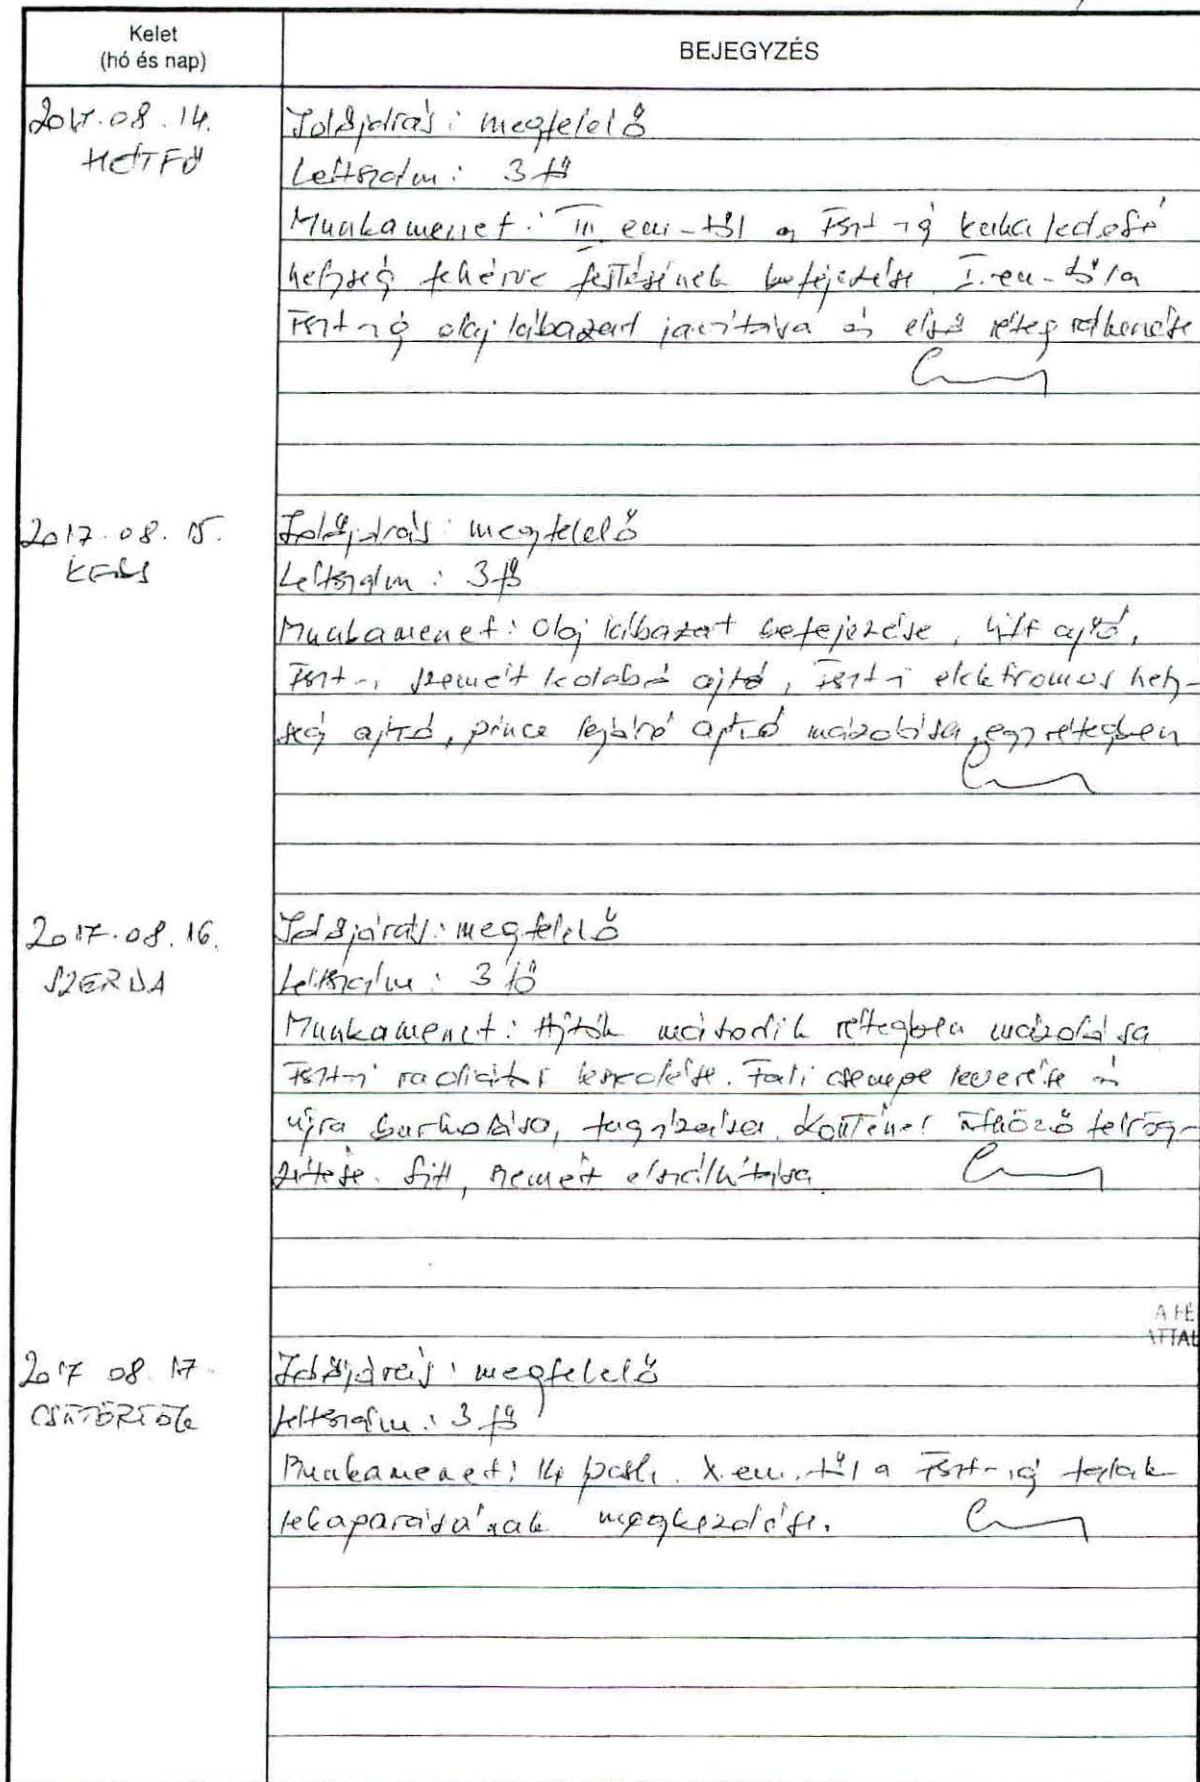 Kelet
(hó és nap)
BEJEGYZÉS
2017.08.14.
HÉTFŐ
Időjárás: megfelelő
Létszám: 3 fő
Munkamenet: III. em-től a Fszt-ig kuka ledobó
helység fehérre festésének befejezése I. em-től a
Fszt-ig olaj lábazat javítása és első réteg átkenése
2017.08.15.
KEDD
Időjárás: megfelelő
Létszám: 3 fő
Munkamenet: Olaj lábazat befejezése, lift ajtó,
Fszt-i szemét ledobó ajtó, Fszt-i elektromos hely-
ség ajtó, pince lejáró ajtó mázolása egy rétegben
2017.08.16.
SZERDA
Időjárás: megfelelő
Létszám: 3 fő
Munkamenet: Ajtók második rétegben mázolása
Fszt-i radiátor lekezelése. Fali csempe leverése és
újra burkolása, fugázása. Konténer ütköző felrög-
zítése. Sitt, szemét elszállítása
A FÉ
ATTAL
2017 08.17.
CSÜTÖRTÖK
Időjárás: megfelelő
Létszám: 3 fő
Munkamenet: 14 X. em.-től a Fszt-ig falak
lekaparásának megkezdése.